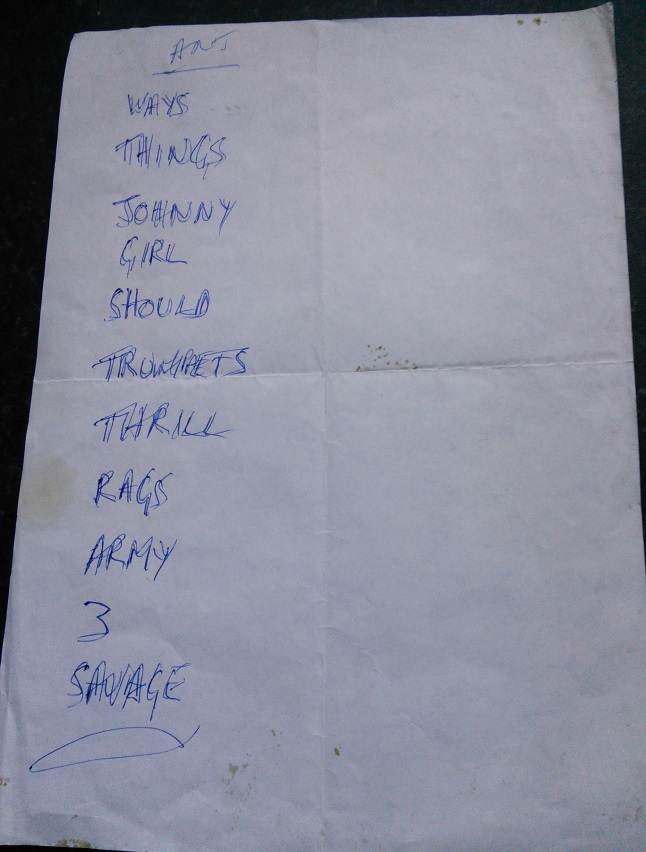 ANT
WAYS
THINGS
JOHNNY
GIRL
SHOULD
TRUMPETS
THRILL
RAGS
ARMY
3
SAVAGE